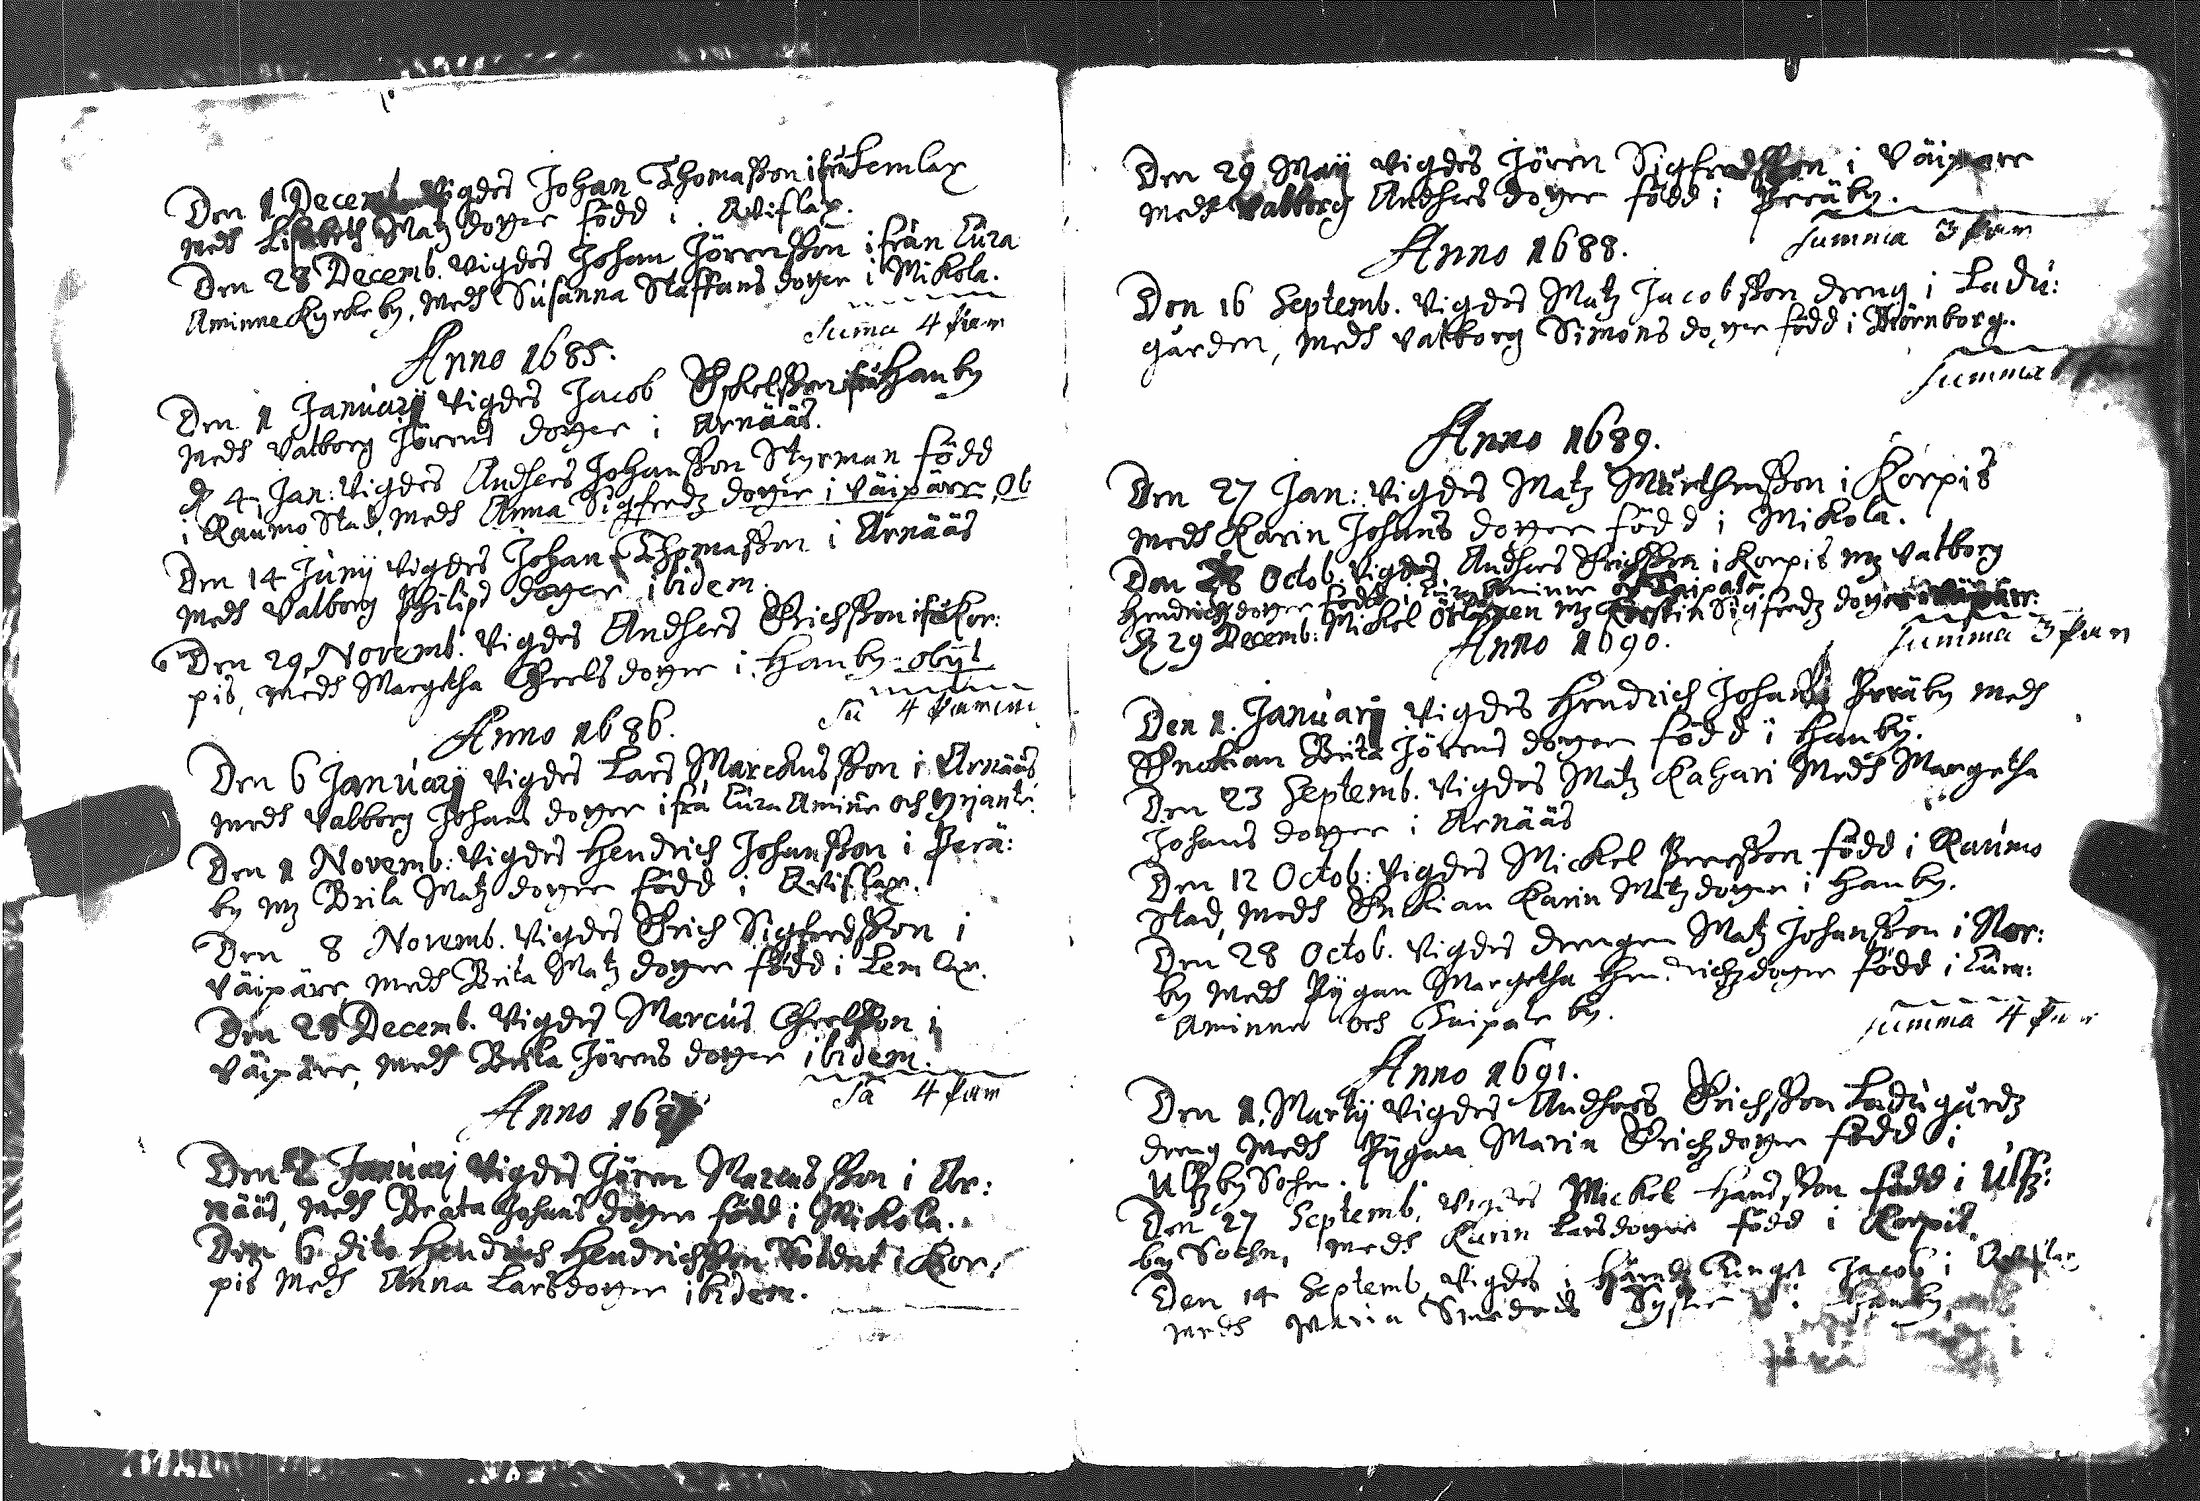 Den 1 Decemb. Vigdes Johan Thomaßon ifrå Lemlax
medh Lisabeth Matz doyer född i Qviflax.
Den 28 Decemb. Vigdes Johan Jörenßon ifrån Lura
Aminne Kyrkeby, medh Susanna Staffans doyer i Mikola.
Suma 4 Paar
Anno 1685.
Den 1 Januarij Vigdes Jacob Eskelßon ifrå Hanby
medh Valborg Jörens doyer i Arnääs.
d. 4 Jan: Vigdes Anders Johanßon Styrman född
i Raumo Stad, medh Anna Sigfredz doyer i Väipäre, Ob
Den 14 Junij Vigdes Johan Thomaßon i Arnääs
medh Valborg Philips doyer ibidem.
Den 29 Novemb. Vigdes Anders Erichßon ifrå Kor:
pis, medh Margetha Cheels doyer i Hanby. obijt
Su 4
Anno 1686.
Den 6 Januarij Vigdes Lars Marcusßon i Arnääs
medh Valborg Johans doyer ifrå Lura Aminne och
Den 1 Novemb: Vigdes Hendrich Johanßon i Perä:
by mz Brita Matz doyer född i Qviflax.
Den 8 Novemb. Vigdes Erich Sigfredßon i
Väipäre, medh Brita Matz doyer född i Lemlax.
Den 28 Decemb. Vigdes Marcus Cheelßon i
Väipäre, medh Brita Jörens doyer ibidem.
Sa 4 Paar
Anno 1687
Den 2 Januarij Vigdes Jören Marcusßon i Ar:
nääs, medh Beata Johans doyer född i Mikola.
Den 6 dito Hendrich Hendrichßon Soldat i Kor,
pis medh Anna Larsdoyer ibidem.
Den 29 Maij Vigdes Jören Sigfredßon i Väipäre
medh Valborg Anders doyer född i Peräby.
summa 3 Paar
Anno 1688.
Den 16 Septemb. Vigdes Matz Jacobßon dreng i Ladu:
gården, medh Valborg Simons doyer född i Biörnborg.
summa
Anno 1689.
Den 27 Jan: Vigdes Matz Mårthenßon i Korpis
medh Karin Johans doyer född i Mikola.
Den 28 Octob. Vigdes Anders Erichßon i Korpis mz Valborg
Hendrichzdoyer född i Lura Aminne och Taipale.
d. 29 Decemb: Mickel mz Kerstin Sigfredz doyer i Väipäre.
summa 3 Paar
Anno 1690.
Den 1. Januarij Vigdes Hendrich Johanß Peräby medh
Enckian Brita Jörens doyer född i Hanby.
Den 23 Septemb. Vigdes Matz Kahari medh Margetha
Johans doyer i Arnääs
Den 12 Octob: Vigdes Mickel Peerßon född i Raumo
Stad, medh Enkian Karin Matzdoyer i Hanby.
Den 28 Octob. Vigdes drengen Matz Johanßon i Nor:
by medh Pygan Margetha Hendrichzdoyer född i Lura:
Aminne och Taipale by.
summa 4 Paar
Anno 1691.
Den 1. Martij Vigdes Anders Erichßon Ladugårdz
dreng medh Pygan Maria Erichzdoyer född i
Ulfzby Sochn.
Den 27 Septemb. Vigdes Mickel Hansßon född i Ulfz:
by Sochn, medh Karin Larsdoyer född i Korpis.
Den 14 Septemb. Vigdes i Jacob i Qviflax
medh Maria Smedens Syster i Hanby